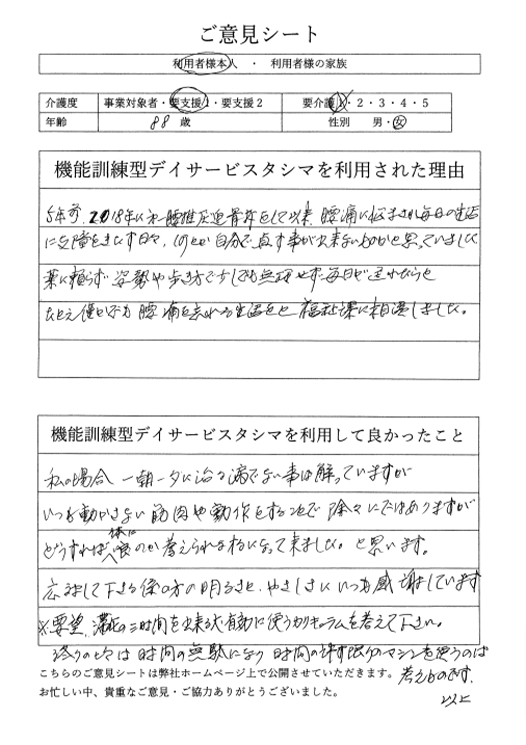 ご意見シート
利用者様本人 ・ 利用者様の家族
介護度 事業対象者・要支援1・要支援2 要介護 1・2・3・4・5
年齢 88 歳 性別 男・女
機能訓練型デイサービスタシマを利用された理由
5年前、2018年に 腰椎圧迫骨折をして以来、腰痛に悩まされ毎日の生活
に支障をきたす日々、何とか自分で直す事が出来ないものかと思っていました
薬に頼らず 姿勢や歩き方で少しでも無理せず毎日が送れたらと
たとえ僅かでも 腰痛を忘れる生活をと 福祉課に相談しました。
機能訓練型デイサービスタシマを利用して良かったこと
私の場合 一朝一夕に治る病でない事は解っていますが
いつも動かさない筋肉や動作をすることで 除々にではありますが
どうすれば体に良いのか考えられる様になって来ました。と思います。
応対して下さる係の方の明るさと、やさしさに いつも感謝しています
※要望、滞在の三時間を出来る丈有効に使うカリキュラムを考えて下さい。
終りの方は 時間の無駄になり 時間の許す限りのマシンを使うのは
考えものです。
以上
こちらのご意見シートは弊社ホームページ上で公開させていただきます。
お忙しい中、貴重なご意見・ご協力ありがとうございました。